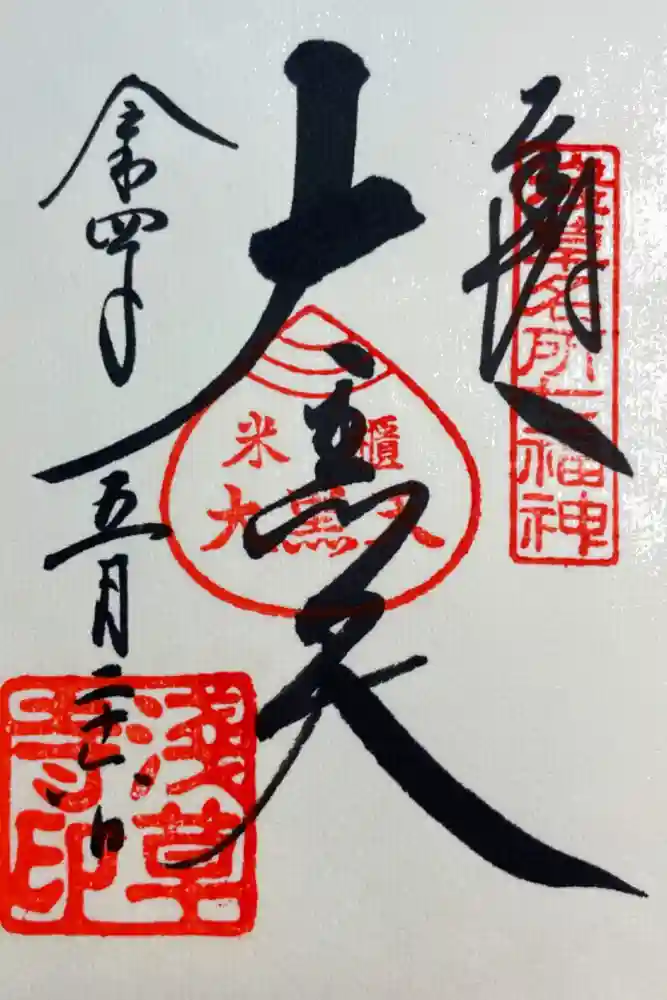 奉拝
淺草名所七福神
大黒天
米櫃
大黒天
令和四年
五月二十六日
淺草
寺印